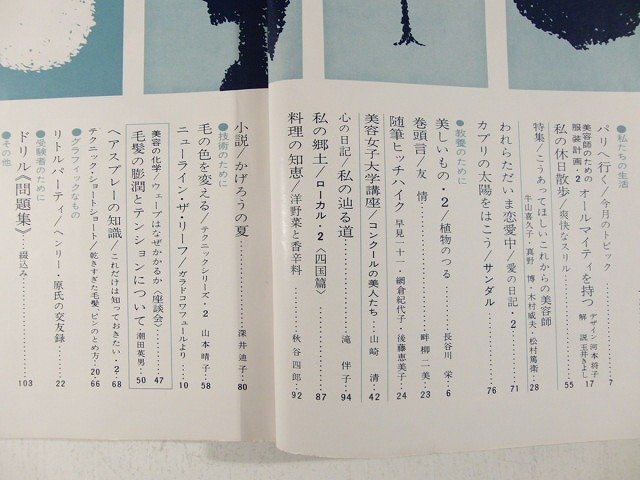 ●私たちの生活
パリへ行く/今月のトピック……7
美容師のための服装計画・2 オールマイティを持つ デザイン 河本将子 解説 玉井きよし……17
私の休日散歩/爽快なスリル……55
特集/こうあってほしいこれからの美容師
牛山喜久子・真野 博・木村威夫・松村篤衛…28
われらただいま恋愛中/愛の日記・2……71
カプリの太陽をはこう/サンダル……76
●教養のために
美しいもの・2/植物のつる……長谷川 栄…6
巻頭言/友 情……畔柳二美…23
随筆ヒッチハイク 早見一十一・網倉紀代子・後藤恵美子…24
美容女子大学講座/コンクールの美人たち…山崎 清…42
心の日記/私の辿る道……滝 伴子…94
私の郷土/ローカル・2〈四国篇〉……87
料理の知恵/洋野菜と香辛料……秋谷四郎…92
小説/かげろうの夏……深井迪子…80
●技術のために
毛の色を変える/テクニックシリーズ・2 山本晴子…58
ニューライン・ザ・リーフ/ガラドコワフュールより…10
美容の化学 ウェーブはなぜかかるか〈座談会〉……47
毛髪の膨潤とテンションについて…潮田英男…50
ヘアスプレーの知識/これだけは知っておきたい・2…68
テクニック・ショートショート/乾きすぎた毛髪、ピンのとめ方…20・66
●グラフィックなもの
リトルパーティ/ヘンリー・原氏の交友録……22
●受験者のために
ドリル《問題集》…綴込み……103
●その他